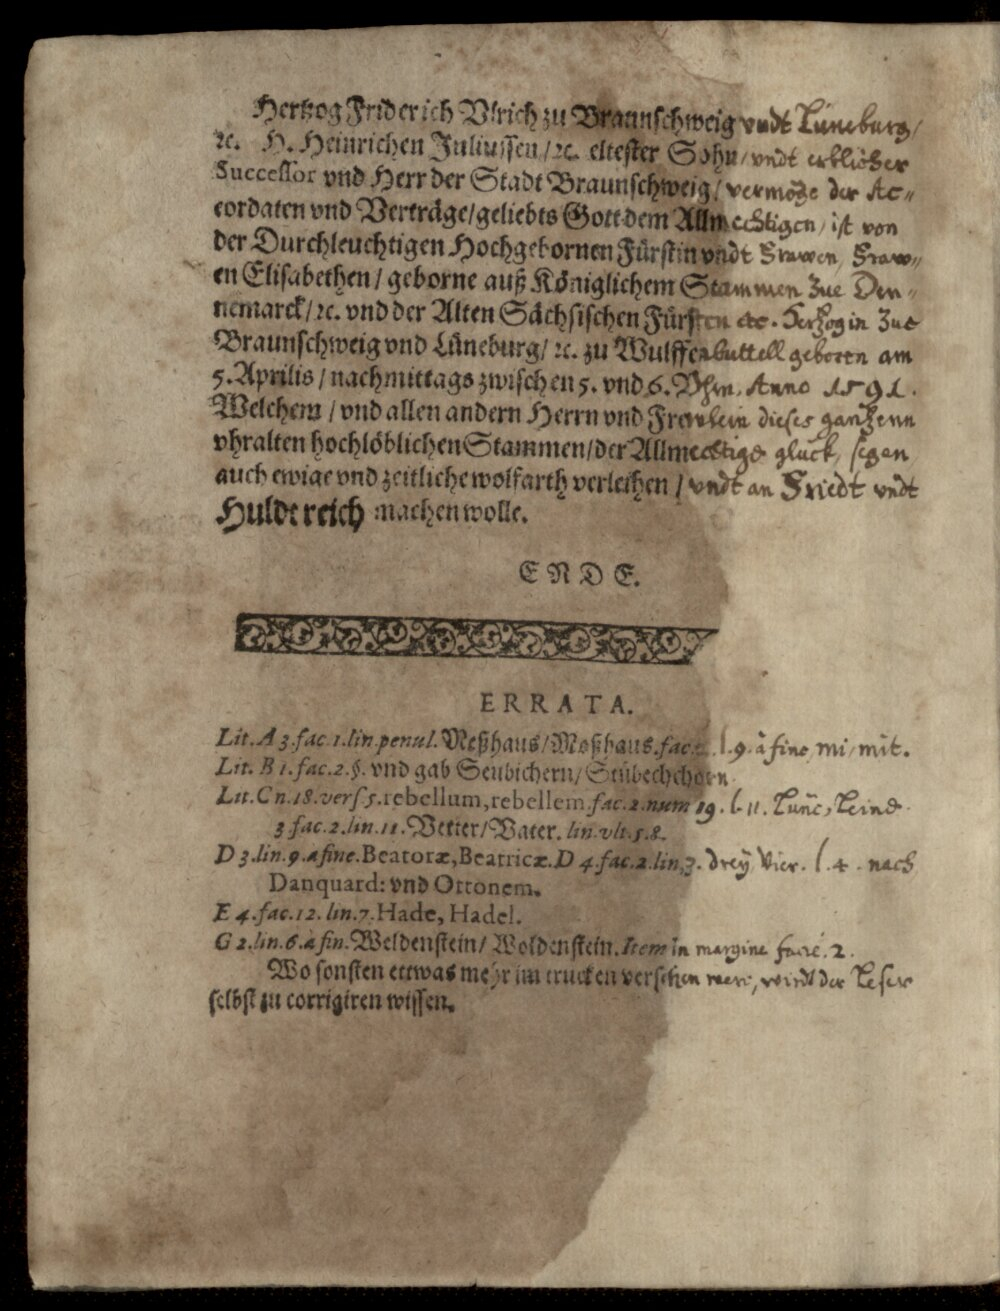 Hertzog Friderich Vlrich zu Braunschweig vndt Lüneburg/
ꝛc. H. Heinrichen Juliussen/ꝛc. eltester Sohn/vndt erblicher
Successor vnd Herr der Stadt Braunschweig/vermöge der Ac-
cordaten vnd Verträge/geliebts Gott dem Allmechtigen/ist von
der Durchleuchtigen Hochgebornen Fürstin vndt Frawen, Fraw-
en Elisabethen/geborne auß Königlichem Stammen Zue Den-
nemarck/ꝛc. vnd der Alten Sächsischen Fürsten etc. Hertzogin Zue
Braunschweig vnd Lüneburg/ꝛc. zu Wulffenbuttell geboren am
5. Aprilis/nachmittags zwischen 5. vnd 6. Vhrn, Anno 1591.
Welchem/vnd allen andern Herrn vnd Frewlein dieses gantzenn
vhralten hochlöblichen Stammen/der Allmechtige gluck, segen
auch ewige vnd zeitliche wolfarth verleihen/vndt an Friedt vndt
Huldt reich machen wolle.
ENDE.
ERRATA.
Lit. A 3. fac. 1. lin. penul. Meßhaus/Moßhaus. fac. 2. l. 9. à fine, mi, mit.
Lit. B 1. fac. 2. §. vnd gab Seubichern/Stübechshorn.
Lit. C n. 18. vers 5. rebellum, rebellem. fac. 2. num 19. l. 11. Lune, Leine.
3 fac. 2. lin. 11. Vetter/Vater. lin. vlt. 5. 8.
D 3. lin. 9. a fine. Beatoræ, Beatricæ. D 4. fac. 2. lin. 3. drey, Vier. l. 4. nach
Danquard: vnd Ottonem.
E 4. fac. 12. lin. 7. Hade, Hadel.
G 2. lin. 6. a fin. Weldenstein/Woldenstein. Item in margine facie. 2.
Wo sonsten ettwas mehr im trucken versehen were, wirdt der Leser
selbst zu corrigiren wissen.